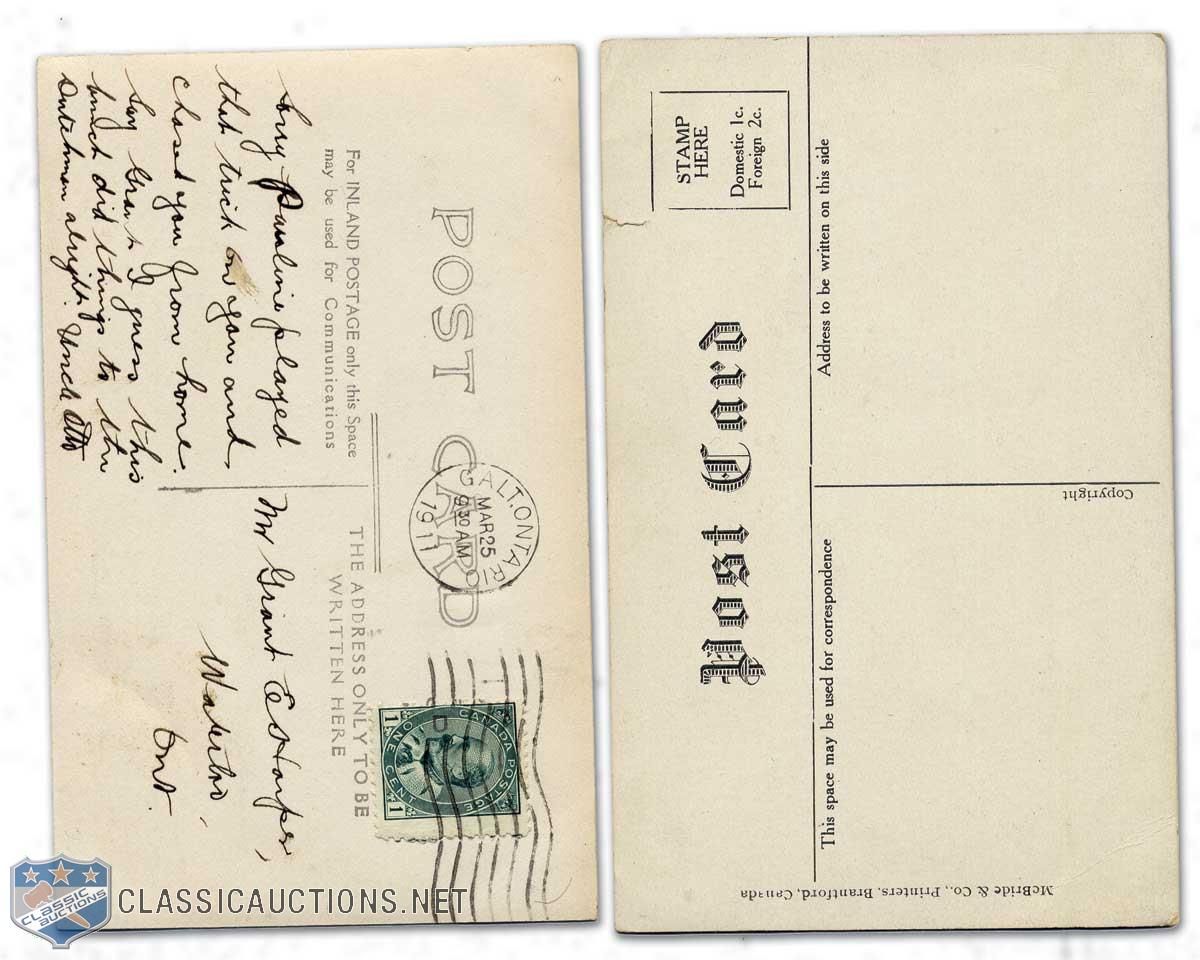 POST CARD
For INLAND POSTAGE only this Space
may be used for Communications
THE ADDRESS ONLY TO BE
WRITTEN HERE
Pauline played
that trick on you and
chased you from home.
Say Grant I guess this
bunch did things to the
Dutchmen alright. Uncle Otto
Mr Grant E
Waterloo,
Ont.
GALT, ONTARIO
MAR 25
9 30 AM
1911
CANADA POSTAGE
ONE CENT
1 1
Post Card
STAMP
HERE
Domestic 1c.
Foreign 2c.
This space may be used for correspondence
Address to be written on this side
Copyright
McBride & Co., Printers, Brantford, Canada
CLASSIC
AUCTIONS
CLASSICAUCTIONS.NET